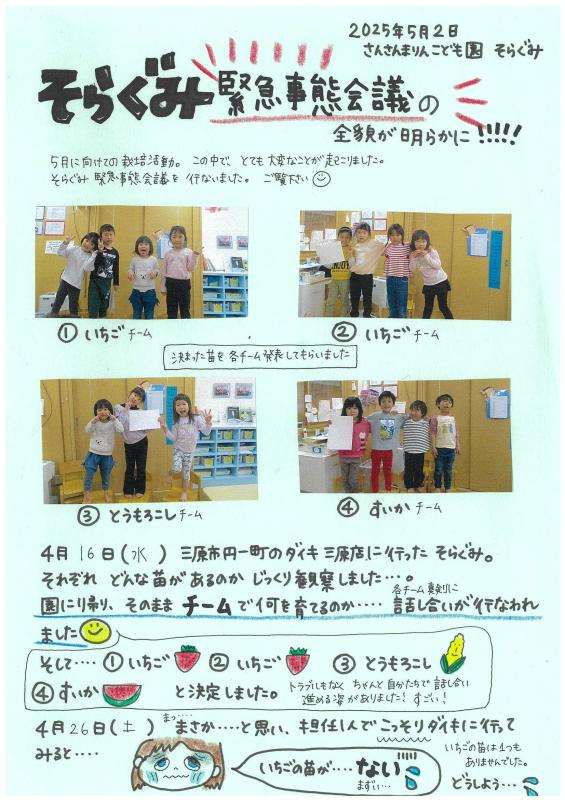 2025年5月2日
さんさんまりんこども園 そらぐみ
そらぐみ緊急事態会議の
全貌が明らかに!!!!!
5月に向けての栽培活動。この中で、とても大変なことが起こりました。
そらぐみ緊急事態会議を行ないました。ご覧下さい
① いちごチーム
② いちごチーム
決まった苗を各チーム発表してもらいました
③ とうもろこしチーム
④ すいかチーム
4月16日(水) 三原市円一町のダイキ三原店に行ったそらぐみ。
それぞれどんな苗があるのかじっくり観察しました…。
各チーム真剣に
園に帰り、そのままチームで何を育てるのか‥‥話し合いが行なわれ
ました
そして‥‥①いちご ②いちご ③とうもろこし
④すいか と決定しました。
トラブルもなく ちゃんと自分たちで話し合い
進める姿がありました!すごい!
4月26日(土) まっ…まさか‥‥と思い、担任1人でこっそりダイキに行って
みると‥‥
いちごの苗が‥‥ない
まずい…
いちごの苗は1つも
ありませんでした。
どうしよう…